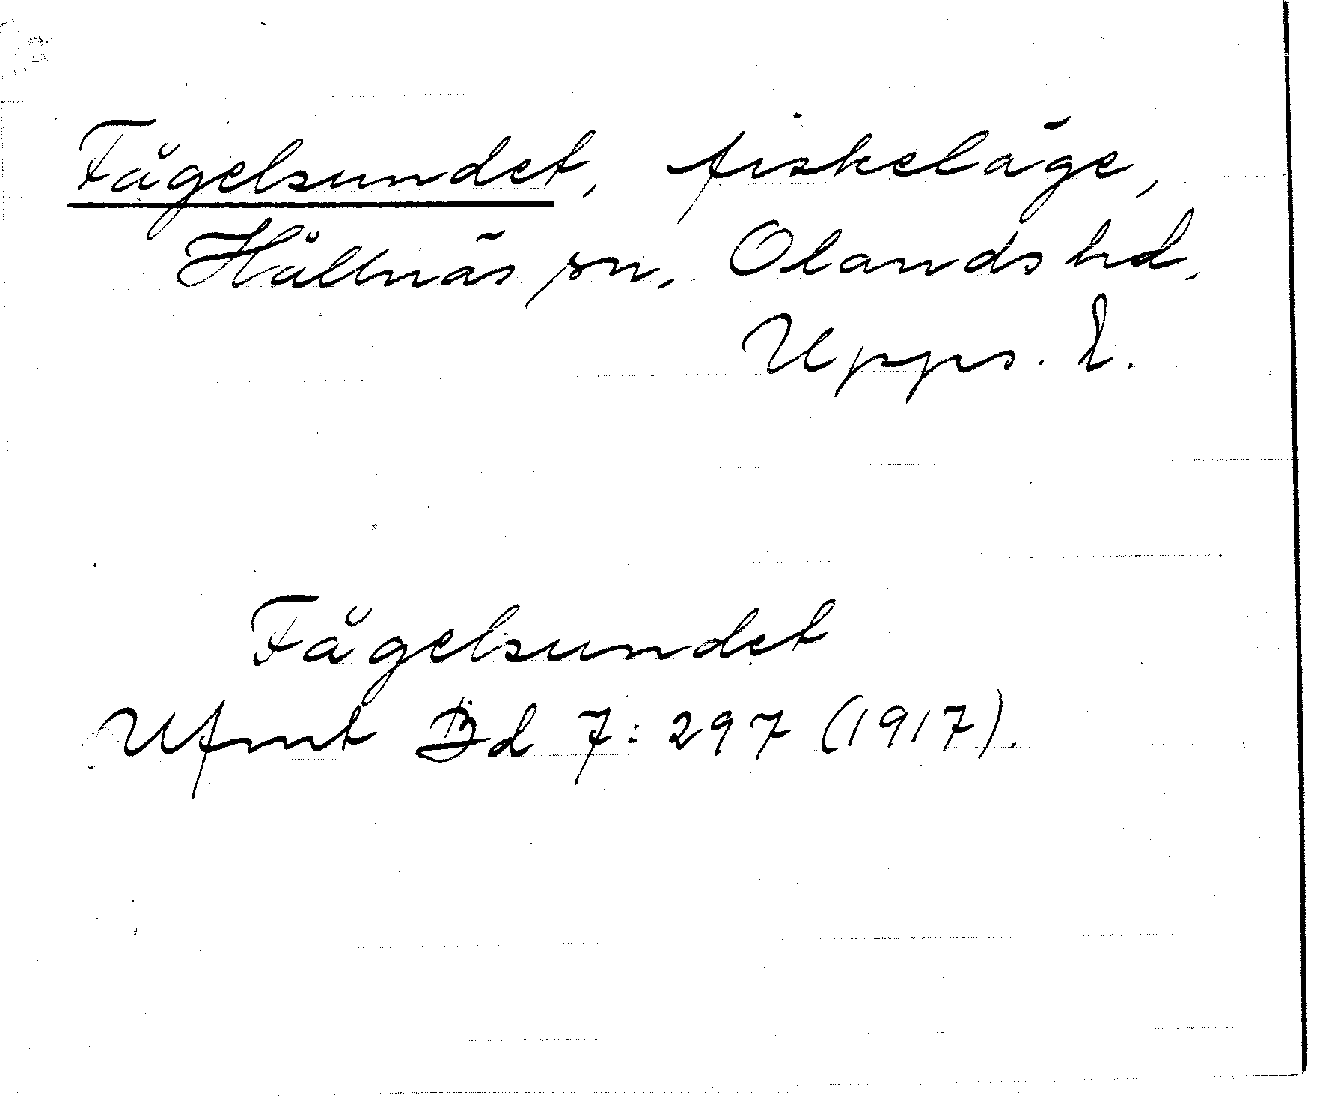 Fågelsundet, fiskeläge,
Hållnäs sn. Olands hd.
Upps. l.
Fågelsundet
Ufmt Bd 7:297 (1917).